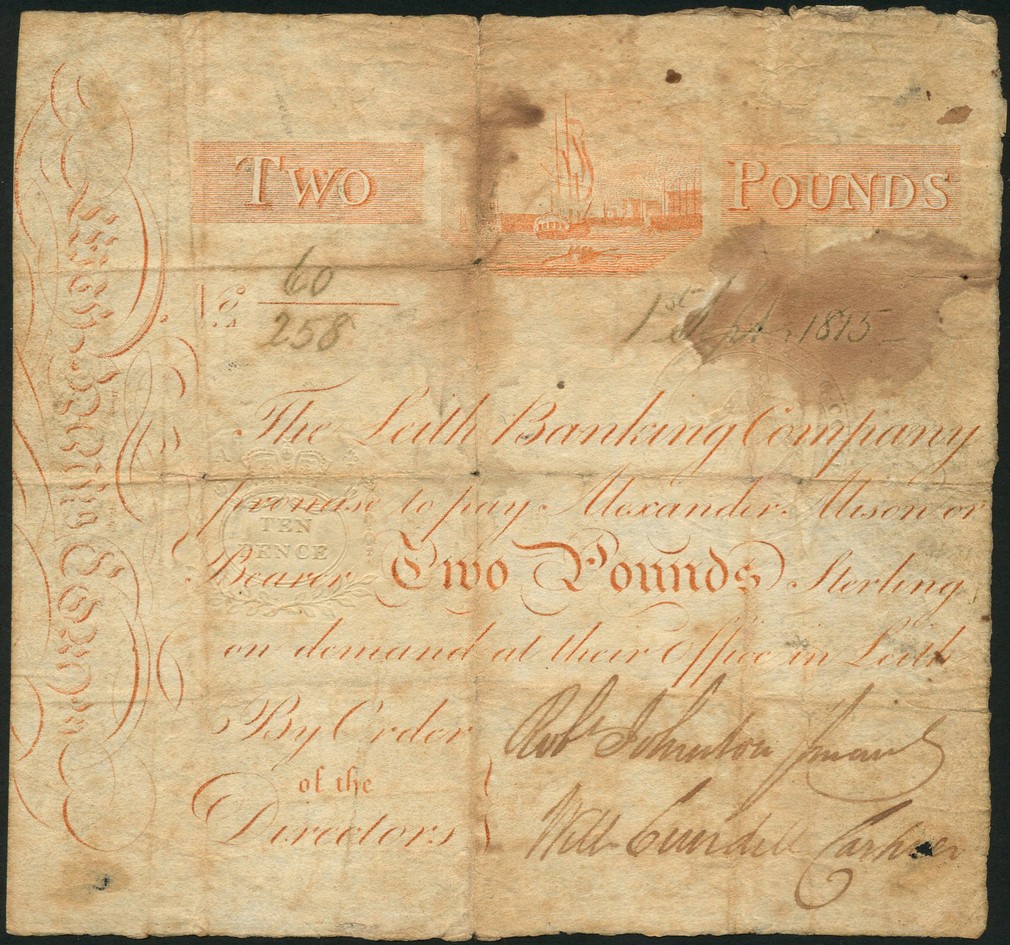 TWO POUNDS
60
No
258
1st Sept. 1815
The Leith Banking Company
promise to pay Alexander Alison or
TEN
PENCE
Bearer Two Pounds Sterling
on demand at their Office in Leith
By Order
of the
Directors
Robt Johnston
Will Cundell Cashier